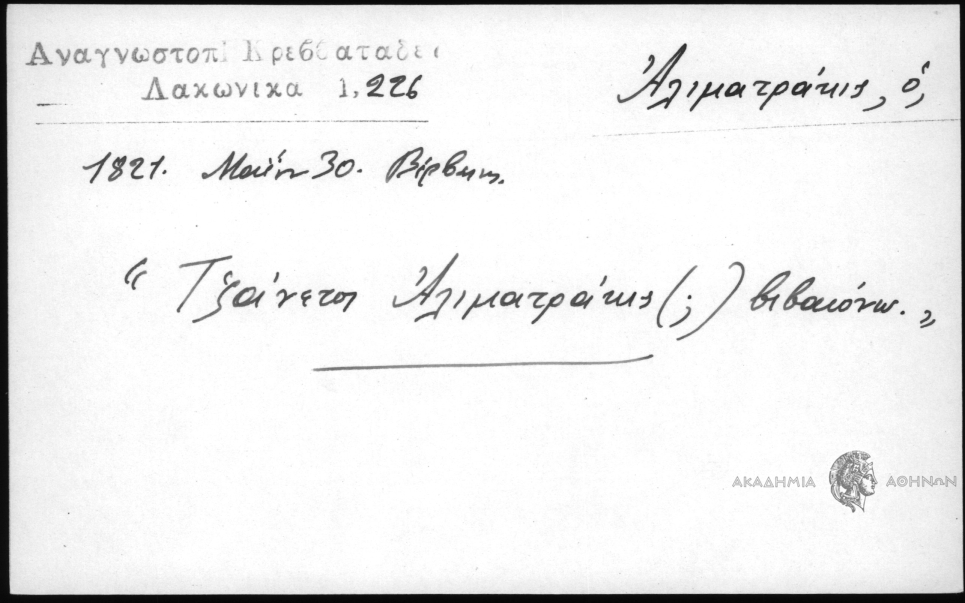 Αναγνωστοπ Κρεββαταδες
Λακωνικα 1,226
Ἀλιματράκης, ὁ,
1821. Μαΐου 30. Βέρβενα.
“ Τζαίνετος Ἀλιματράκης (;) βιβαιόνω. „
ΑΚΑΔΗΜΙΑ ΑΘΗΝΩΝ